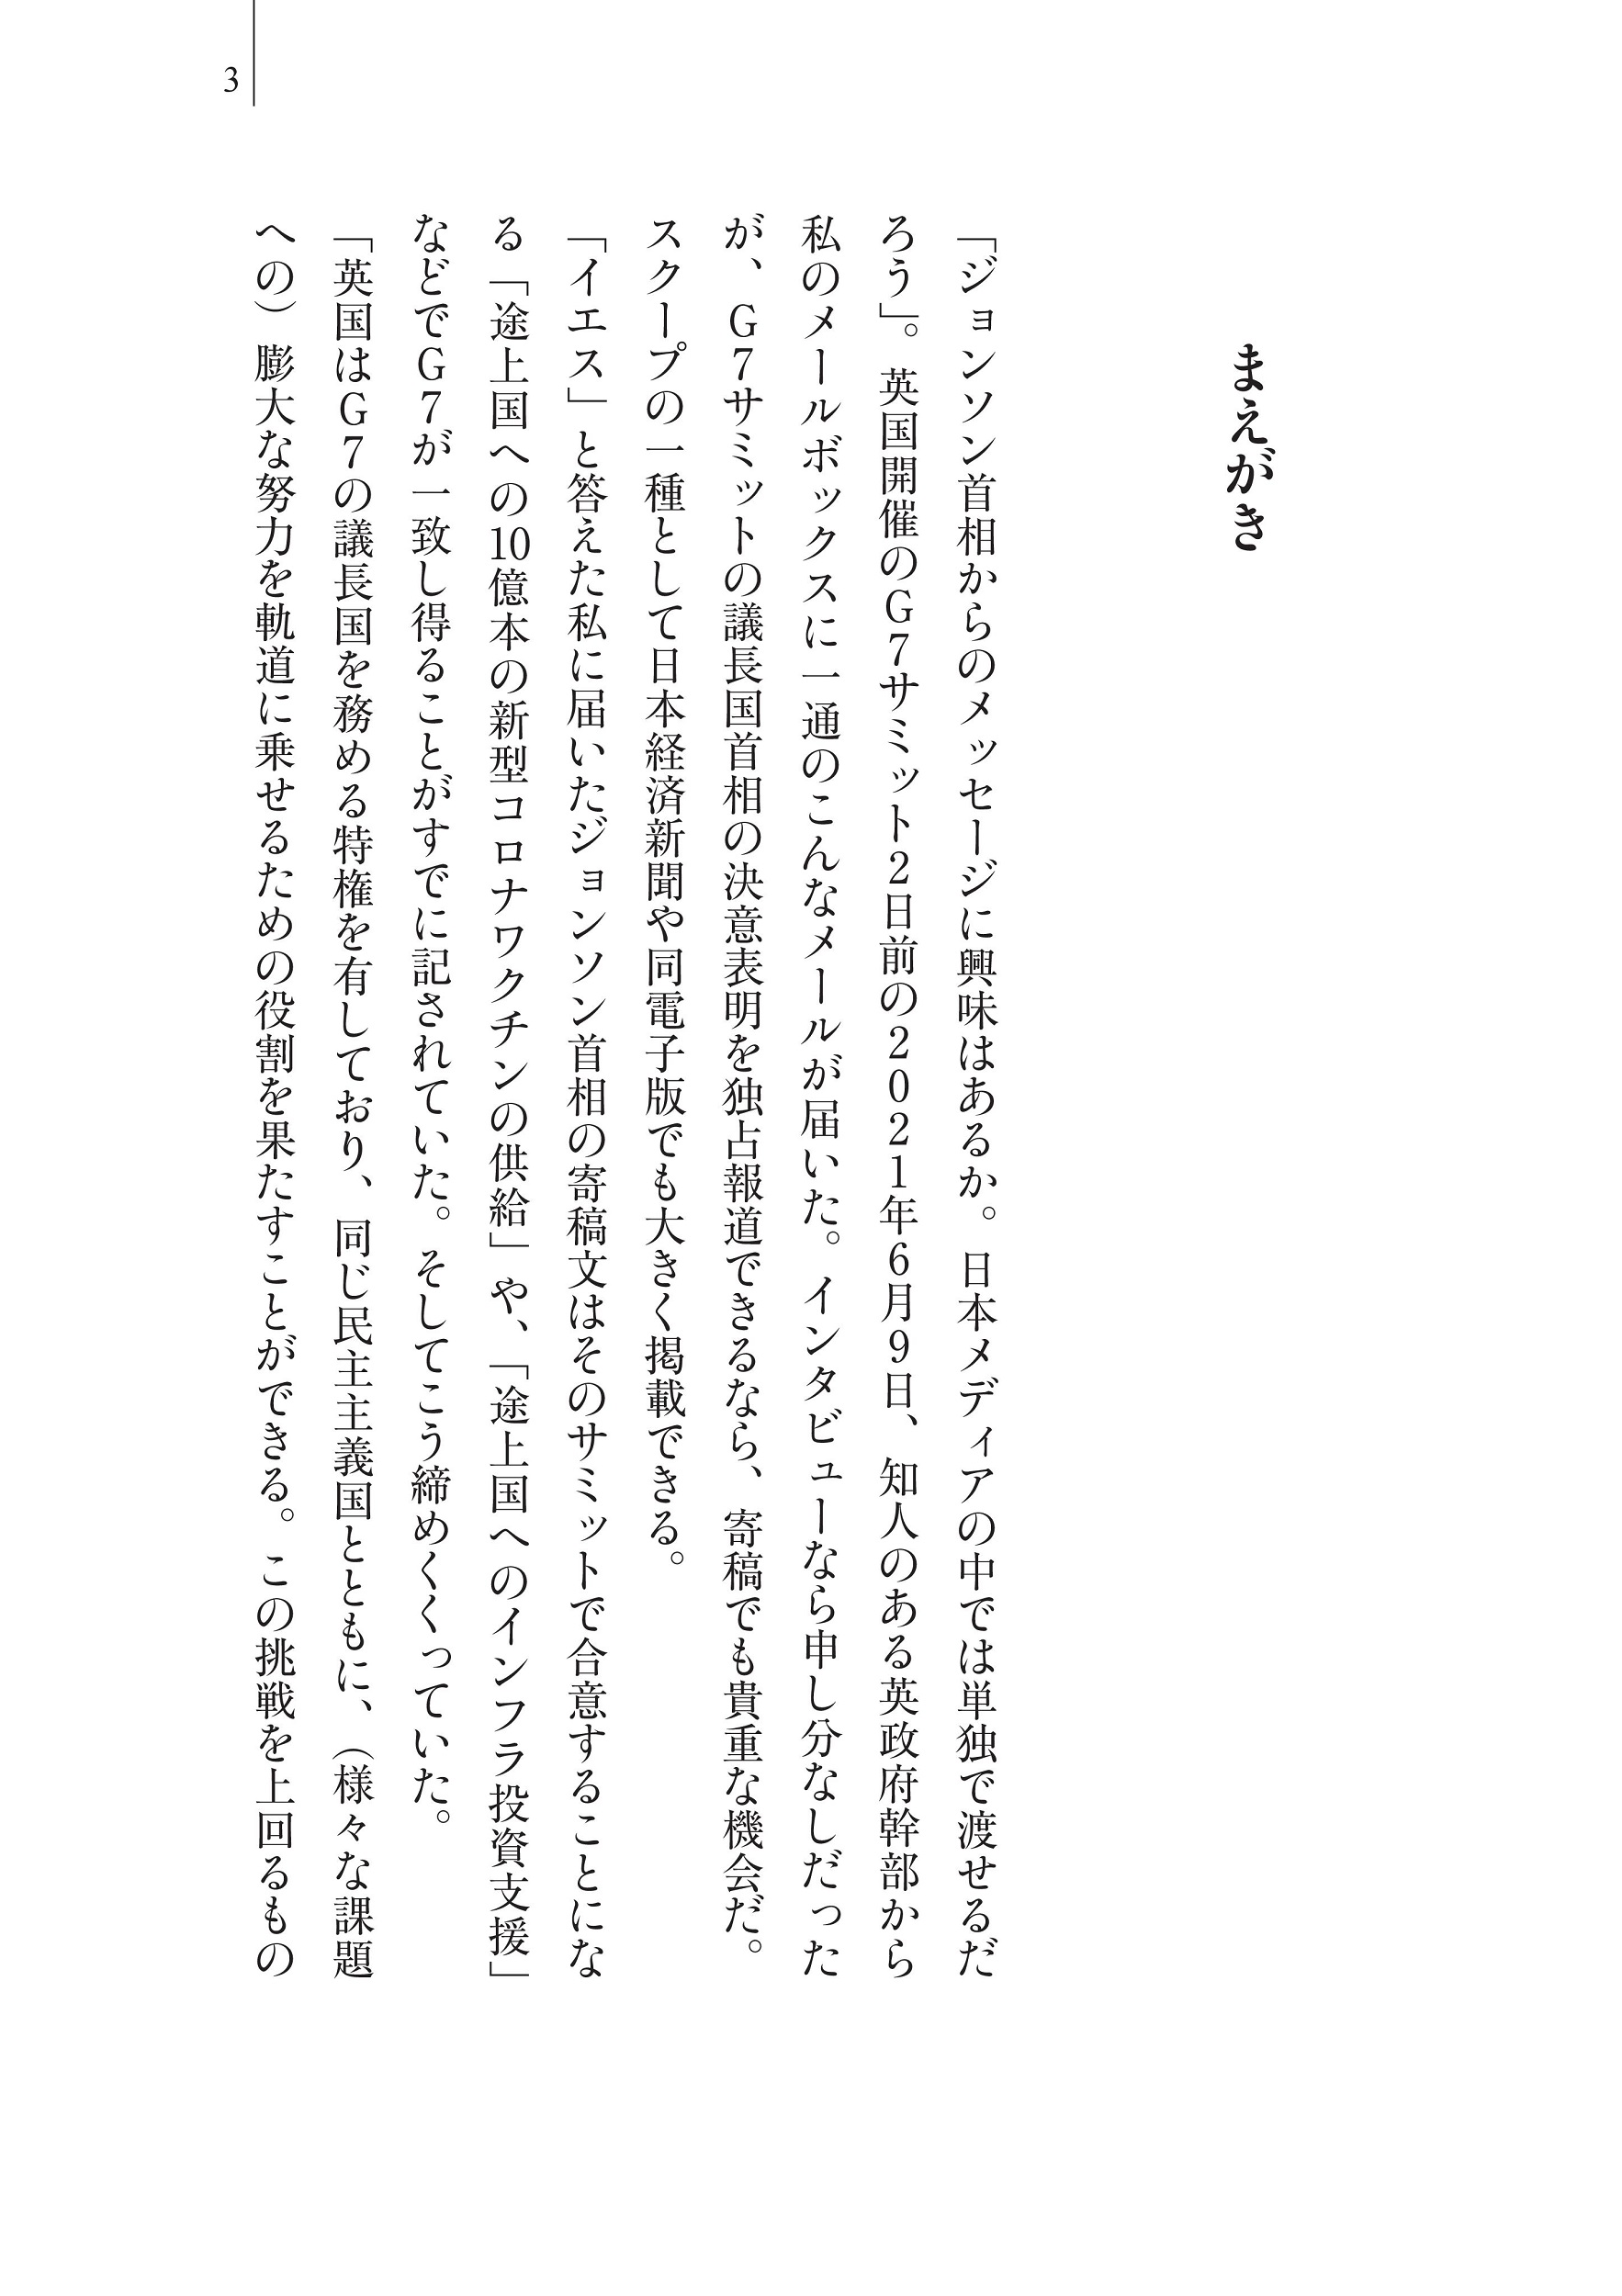 まえがき
「ジョンソン首相からのメッセージに興味はあるか。日本メディアの中では単独で渡せるだ
ろう」。英国開催のG7サミット2日前の2021年6月9日、知人のある英政府幹部から
私のメールボックスに一通のこんなメールが届いた。インタビューなら申し分なしだった
が、G7サミットの議長国首相の決意表明を独占報道できるなら、寄稿でも貴重な機会だ。
スクープの一種として日本経済新聞や同電子版でも大きく掲載できる。
「イエス」と答えた私に届いたジョンソン首相の寄稿文はそのサミットで合意することにな
る「途上国への10億本の新型コロナワクチンの供給」や、「途上国へのインフラ投資支援」
などでG7が一致し得ることがすでに記されていた。そしてこう締めくくっていた。
「英国はG7の議長国を務める特権を有しており、同じ民主主義国とともに、（様々な課題
への）膨大な努力を軌道に乗せるための役割を果たすことができる。この挑戦を上回るもの
3